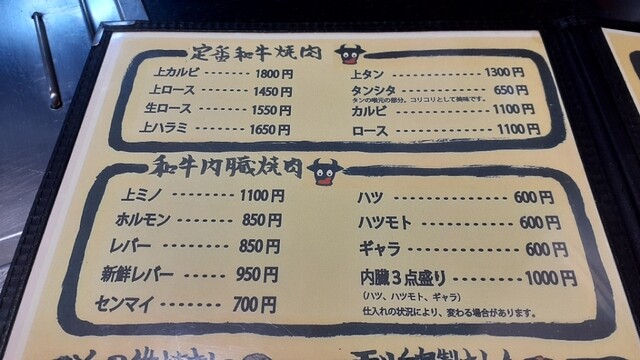 定番和牛焼肉
上カルビ ‥‥‥‥ 1800円
上ロース ‥‥‥‥ 1450円
生ロース ‥‥‥‥ 1550円
上ハラミ ‥‥‥‥ 1650円
上タン ‥‥‥‥‥‥ 1300円
タンシタ ‥‥‥‥‥‥ 650円
タンの喉元の部分。コリコリとして美味です。
カルビ ‥‥‥‥‥‥ 1100円
ロース ‥‥‥‥‥‥ 1100円
和牛内臓焼肉
上ミノ ‥‥‥‥ 1100円
ホルモン ‥‥‥‥ 850円
レバー ‥‥‥‥ 850円
新鮮レバー ‥‥‥‥ 950円
センマイ ‥‥‥‥ 700円
ハツ ‥‥‥‥‥‥ 600円
ハツモト ‥‥‥‥‥‥ 600円
ギャラ ‥‥‥‥‥‥ 600円
内臓3点盛り ‥‥‥‥ 1000円
(ハツ、ハツモト、ギャラ)
仕入れの状況により、変わる場合があります。